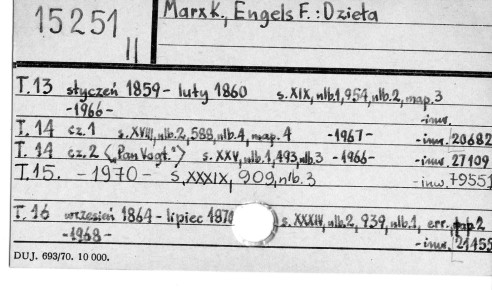 15251
II
Marx K., Engels F.: Dzieła
T.13 styczeń 1859 - luty 1860 s.XIX, nlb.1, 954, nlb.2, map.3
-1966- -inw.
T.14 cz.1 s.XVIII, nlb.2, 588, nlb.4, map.4 -1967- -inw. 20682
T.14 cz.2 <"Pan Vogt"> s.XXV, nlb.1, 493, nlb.3 -1966- -inw. 27109
T.15. -1970- s.XXXIX, 909, nlb.3 -inw. 79551
T.16 wrzesień 1864 - lipiec 1870 s.XXXIV, nlb.2, 939, nlb.1, err., 2
-1968- -inw. 21455
DUJ. 693/70. 10 000.